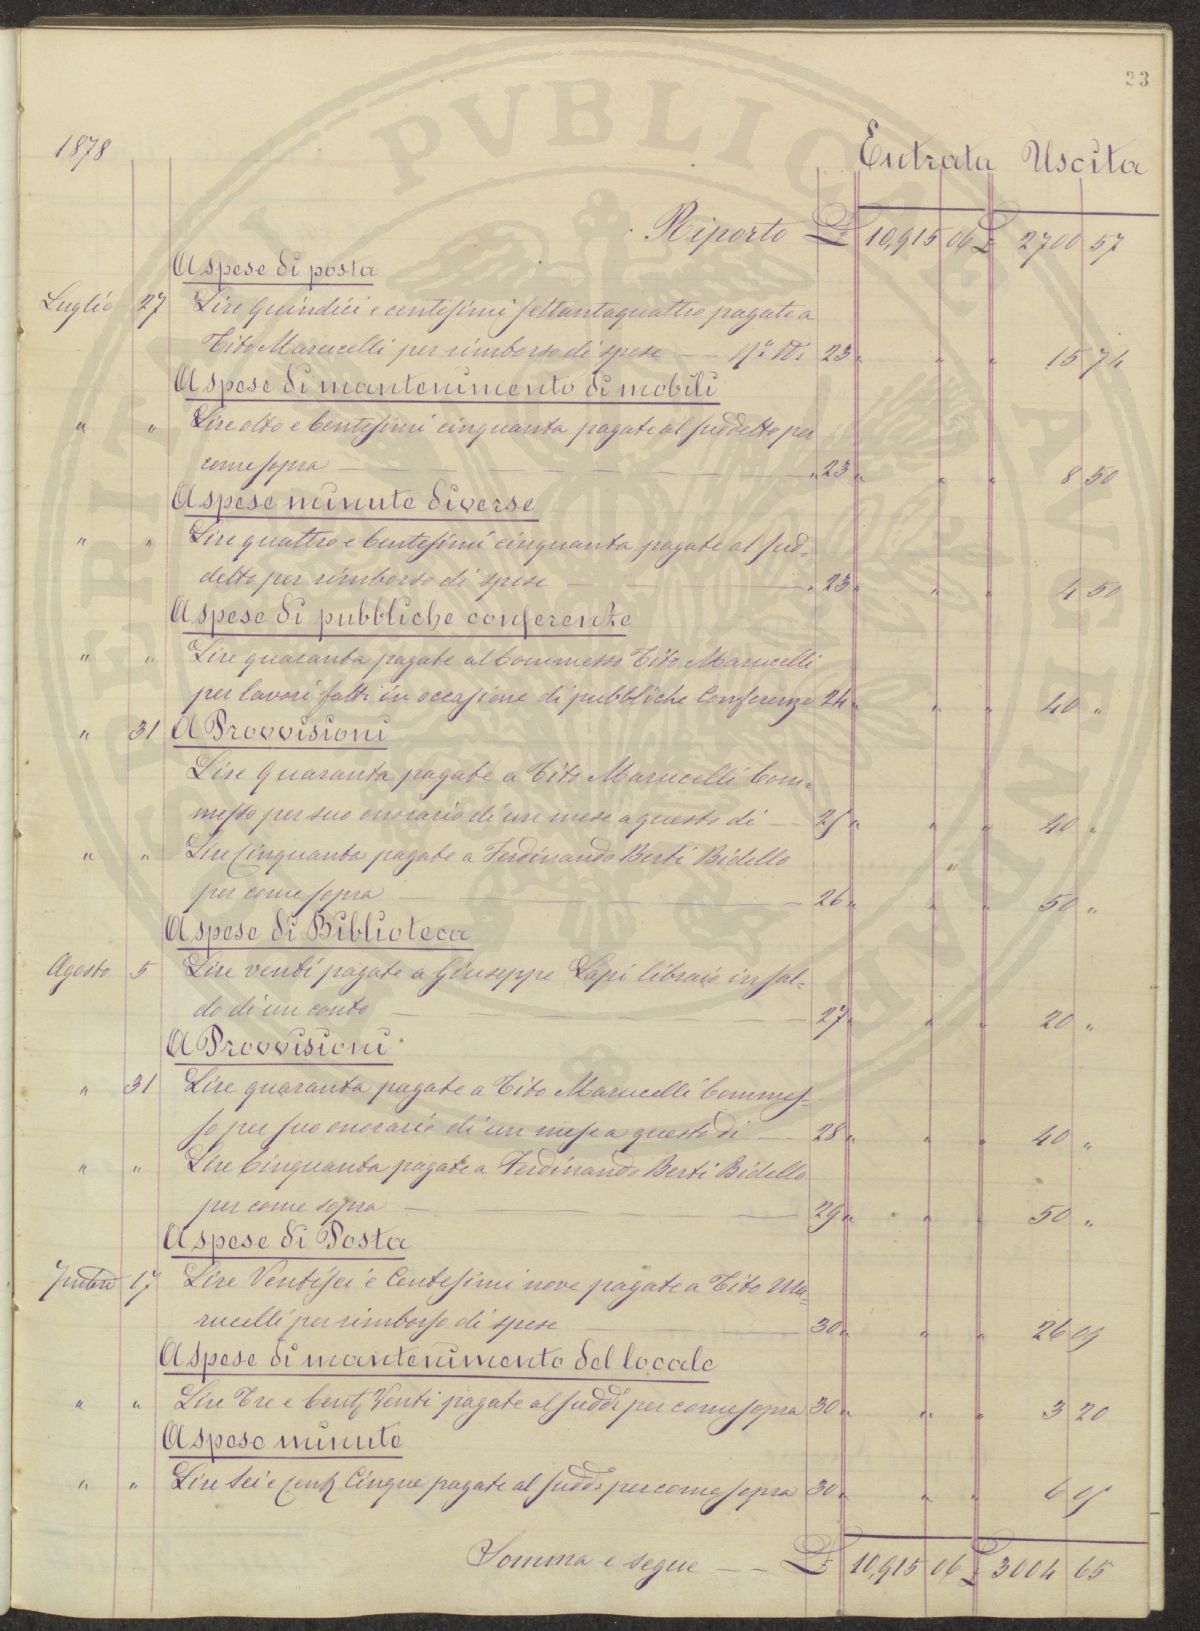 23
1878 Entrata Uscita
Riporto £ 10,915 06 £ 2700 57
A spese di posta
Luglio 27 Lire quindici e centesimi settantaquattro pagate a
Tito Marucelli per rimborso di spese — Nº Di 23 " " " 15 74
A spese di mantenimento di mobili
" " Lire otto e Centesimi cinquanta pagate al suddetto per
come sopra — " 23 " " " 8 50
A spese minute diverse
" " Lire quattro e Centesimi cinquanta pagate al sud=
detto per rimborso di spese — " 23 " " " 4 50
A spese di pubbliche conferenze
" " Lire quaranta pagate al Commesso Tito Marucelli
per lavori fatti in occasione di pubbliche Conferenze 24 " " " 40 "
" 31 A Provvisioni
Lire Quaranta pagate a Tito Marucelli Com=
messo per suo onorario di un mese a questo dì — 25 " " " 40 "
" " Lire Cinquanta pagate a Ferdinando Berti Bidello "
per come sopra — 26 " " " 50 "
A spese di Biblioteca
Agosto 5 Lire venti pagate a Giuseppe Lapi libraio in sal=
do di un conto — 27 " " " 20 "
A Provvisioni
" 31 Lire quaranta pagate a Tito Marucelli Commes=
so per suo onorario di un mese a questo dì — 28 " " " 40 "
" " Lire Cinquanta pagate a Ferdinando Berti Bidello
per come sopra — 29 " " " 50 "
A spese di Posta
7mbre 17 Lire Ventisei e Centesimi nove pagate a Tito Ma=
rucelli per rimborso di spese — 30 " " " 26 09
A spese di mantenimento del locale
" " Lire Tre e Cent. Venti pagate al sudd. per come sopra 30 " " " 3 20
A spese minute
" " Lire Sei e Cent. Cinque pagate al sudd. per come sopra 30 " " " 6 05
Somma e segue — £ 10,915 06 £ 3004 65